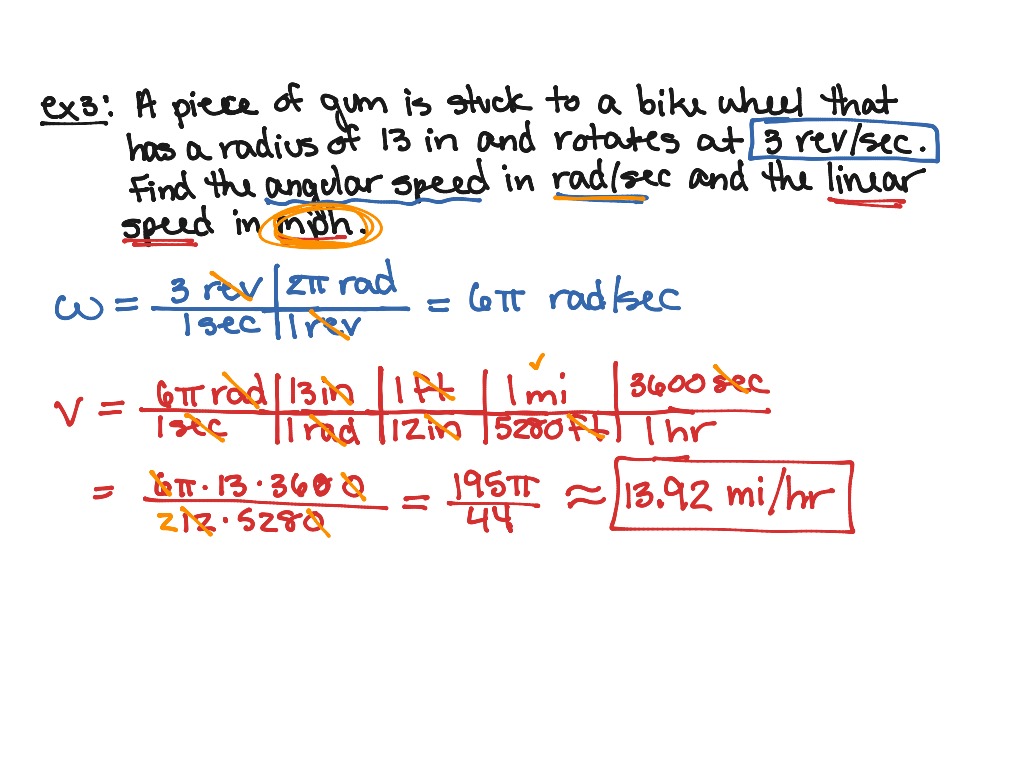 ex3: A piece of gum is stuck to a bike wheel that
has a radius of 13 in and rotates at 3 rev/sec.
Find the angular speed in rad/sec and the linear
speed in mph.
ω = 3 rev | 2π rad / 1 sec | 1 rev = 6π rad/sec
v = 6π rad | 13 in | 1 ft | 1 mi | 3600 sec / 1 sec | 1 rad | 12 in | 5280 ft | 1 hr
= 6π · 13 · 3600 / 2 12 · 5280 = 195π / 44 ≈ 13.92 mi/hr